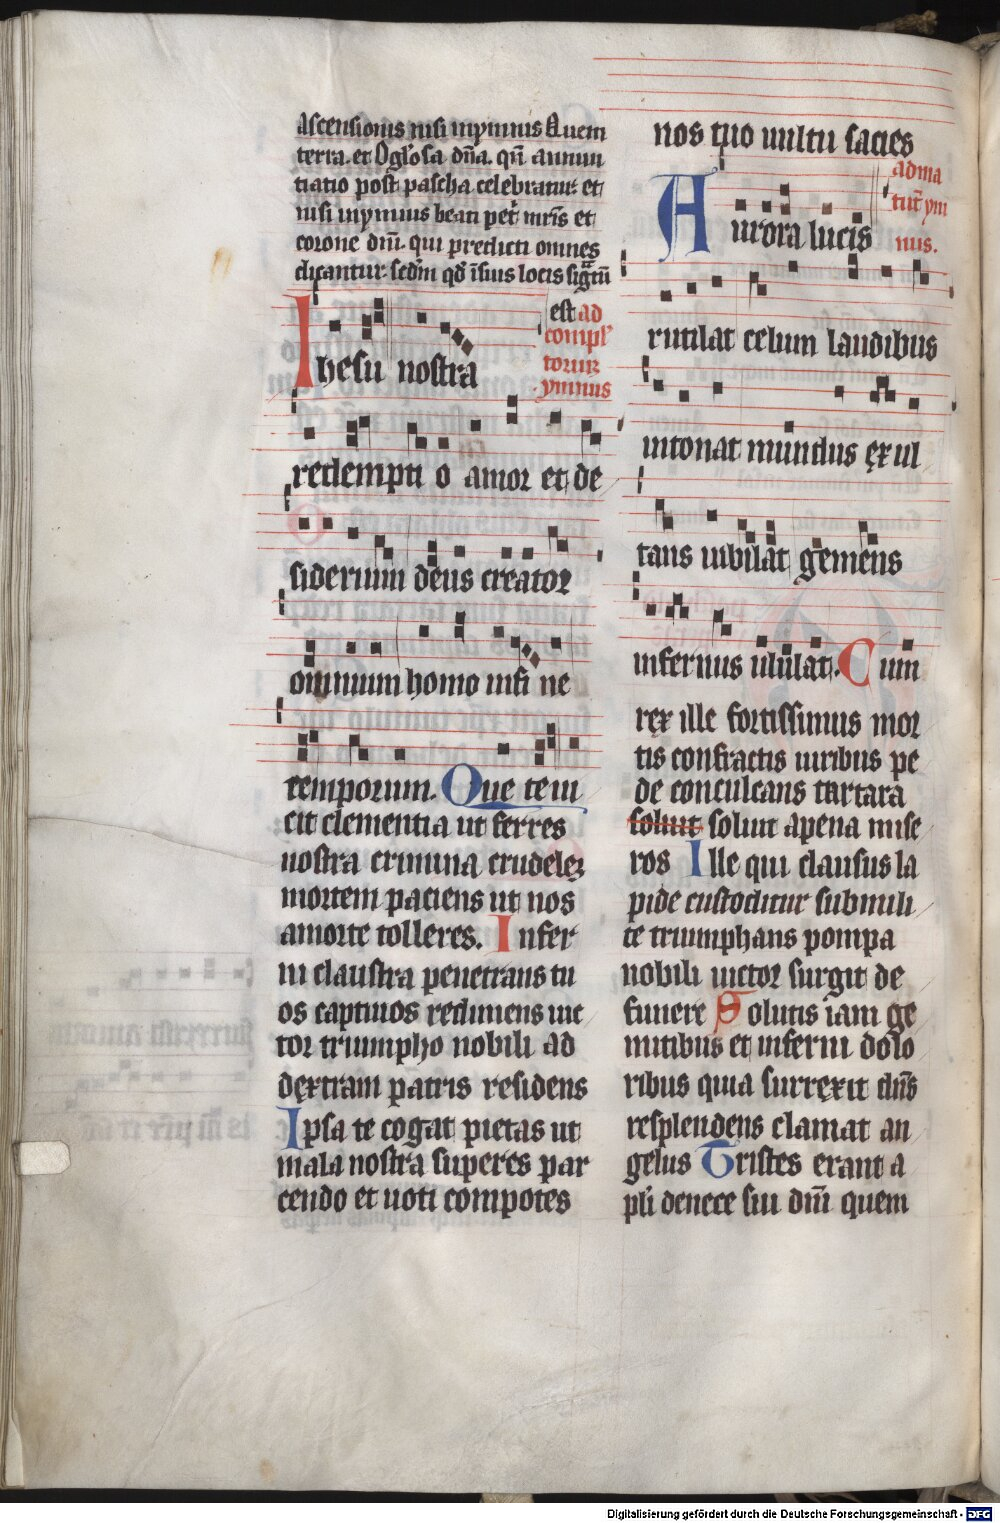 ascensionis nisi in ymnus Quem
terra. et O gl'osa dn̄a. qn̄ annun
tiatio post pascha celebratur. et
nisi in ymnus beati pet' mr̄is et
corone dn̄i. qui predicti omnes
dicantur. sedm̄ qd̄ ī suis locis sigr̄tū
est ad
compl'
torium
ymnus
Ihesu nostra
redempti o amor et de
siderium deus creator
omnium homo in fi ne
temporum. Que te ui
cit clementia ut ferres
nostra crimina crudelem
mortem paciens ut nos
amorte tolleres. Infer
ni claustra penetrans tu
os captiuos redimens uic
tor triumpho nobili ad
dextram patris residens
Ipsa te cogat pietas ut
mala nostra superes par
cendo et uoti compotes
nos tuo uultu sacies
ad ma
tut' ym
nus.
Aurora lucis
rutilat celum laudibus
intonat mundus ex ul
tans iubilat gemens
infernus ululat. Cum
rex ille fortissimus mor
tis confractis uiribus pe
de conculcans tartara
soluit soluit apena mise
ros Ille qui clausus la
pide custoditur sub mili
te triumphans pompa
nobili uictor surgit de
funere Solutis iam ge
mitibus et inferni dolo
ribus quia surrexit dn̄s
resplendens clamat an
gelus Tristes erant a
pl'i denece sui dn̄i quem
Digitalisierung gefördert durch die Deutsche Forschungsgemeinschaft - DFG